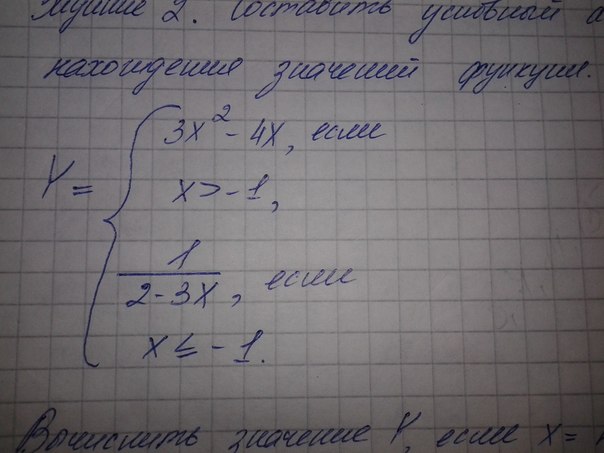 2. Составить условный а
нахождения значений функции.
Y =
3x² - 4x, если
x > -1,
1
2-3x, если
x ≤ -1.
Вычислить значение Y, если x =